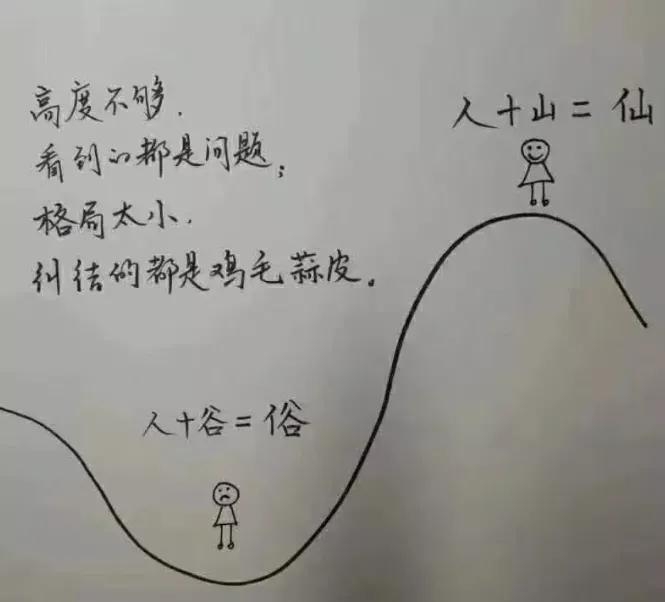 高度不够.
看到的都是问题;
格局太小.
纠结的都是鸡毛蒜皮。
人+山=仙
人+谷=俗